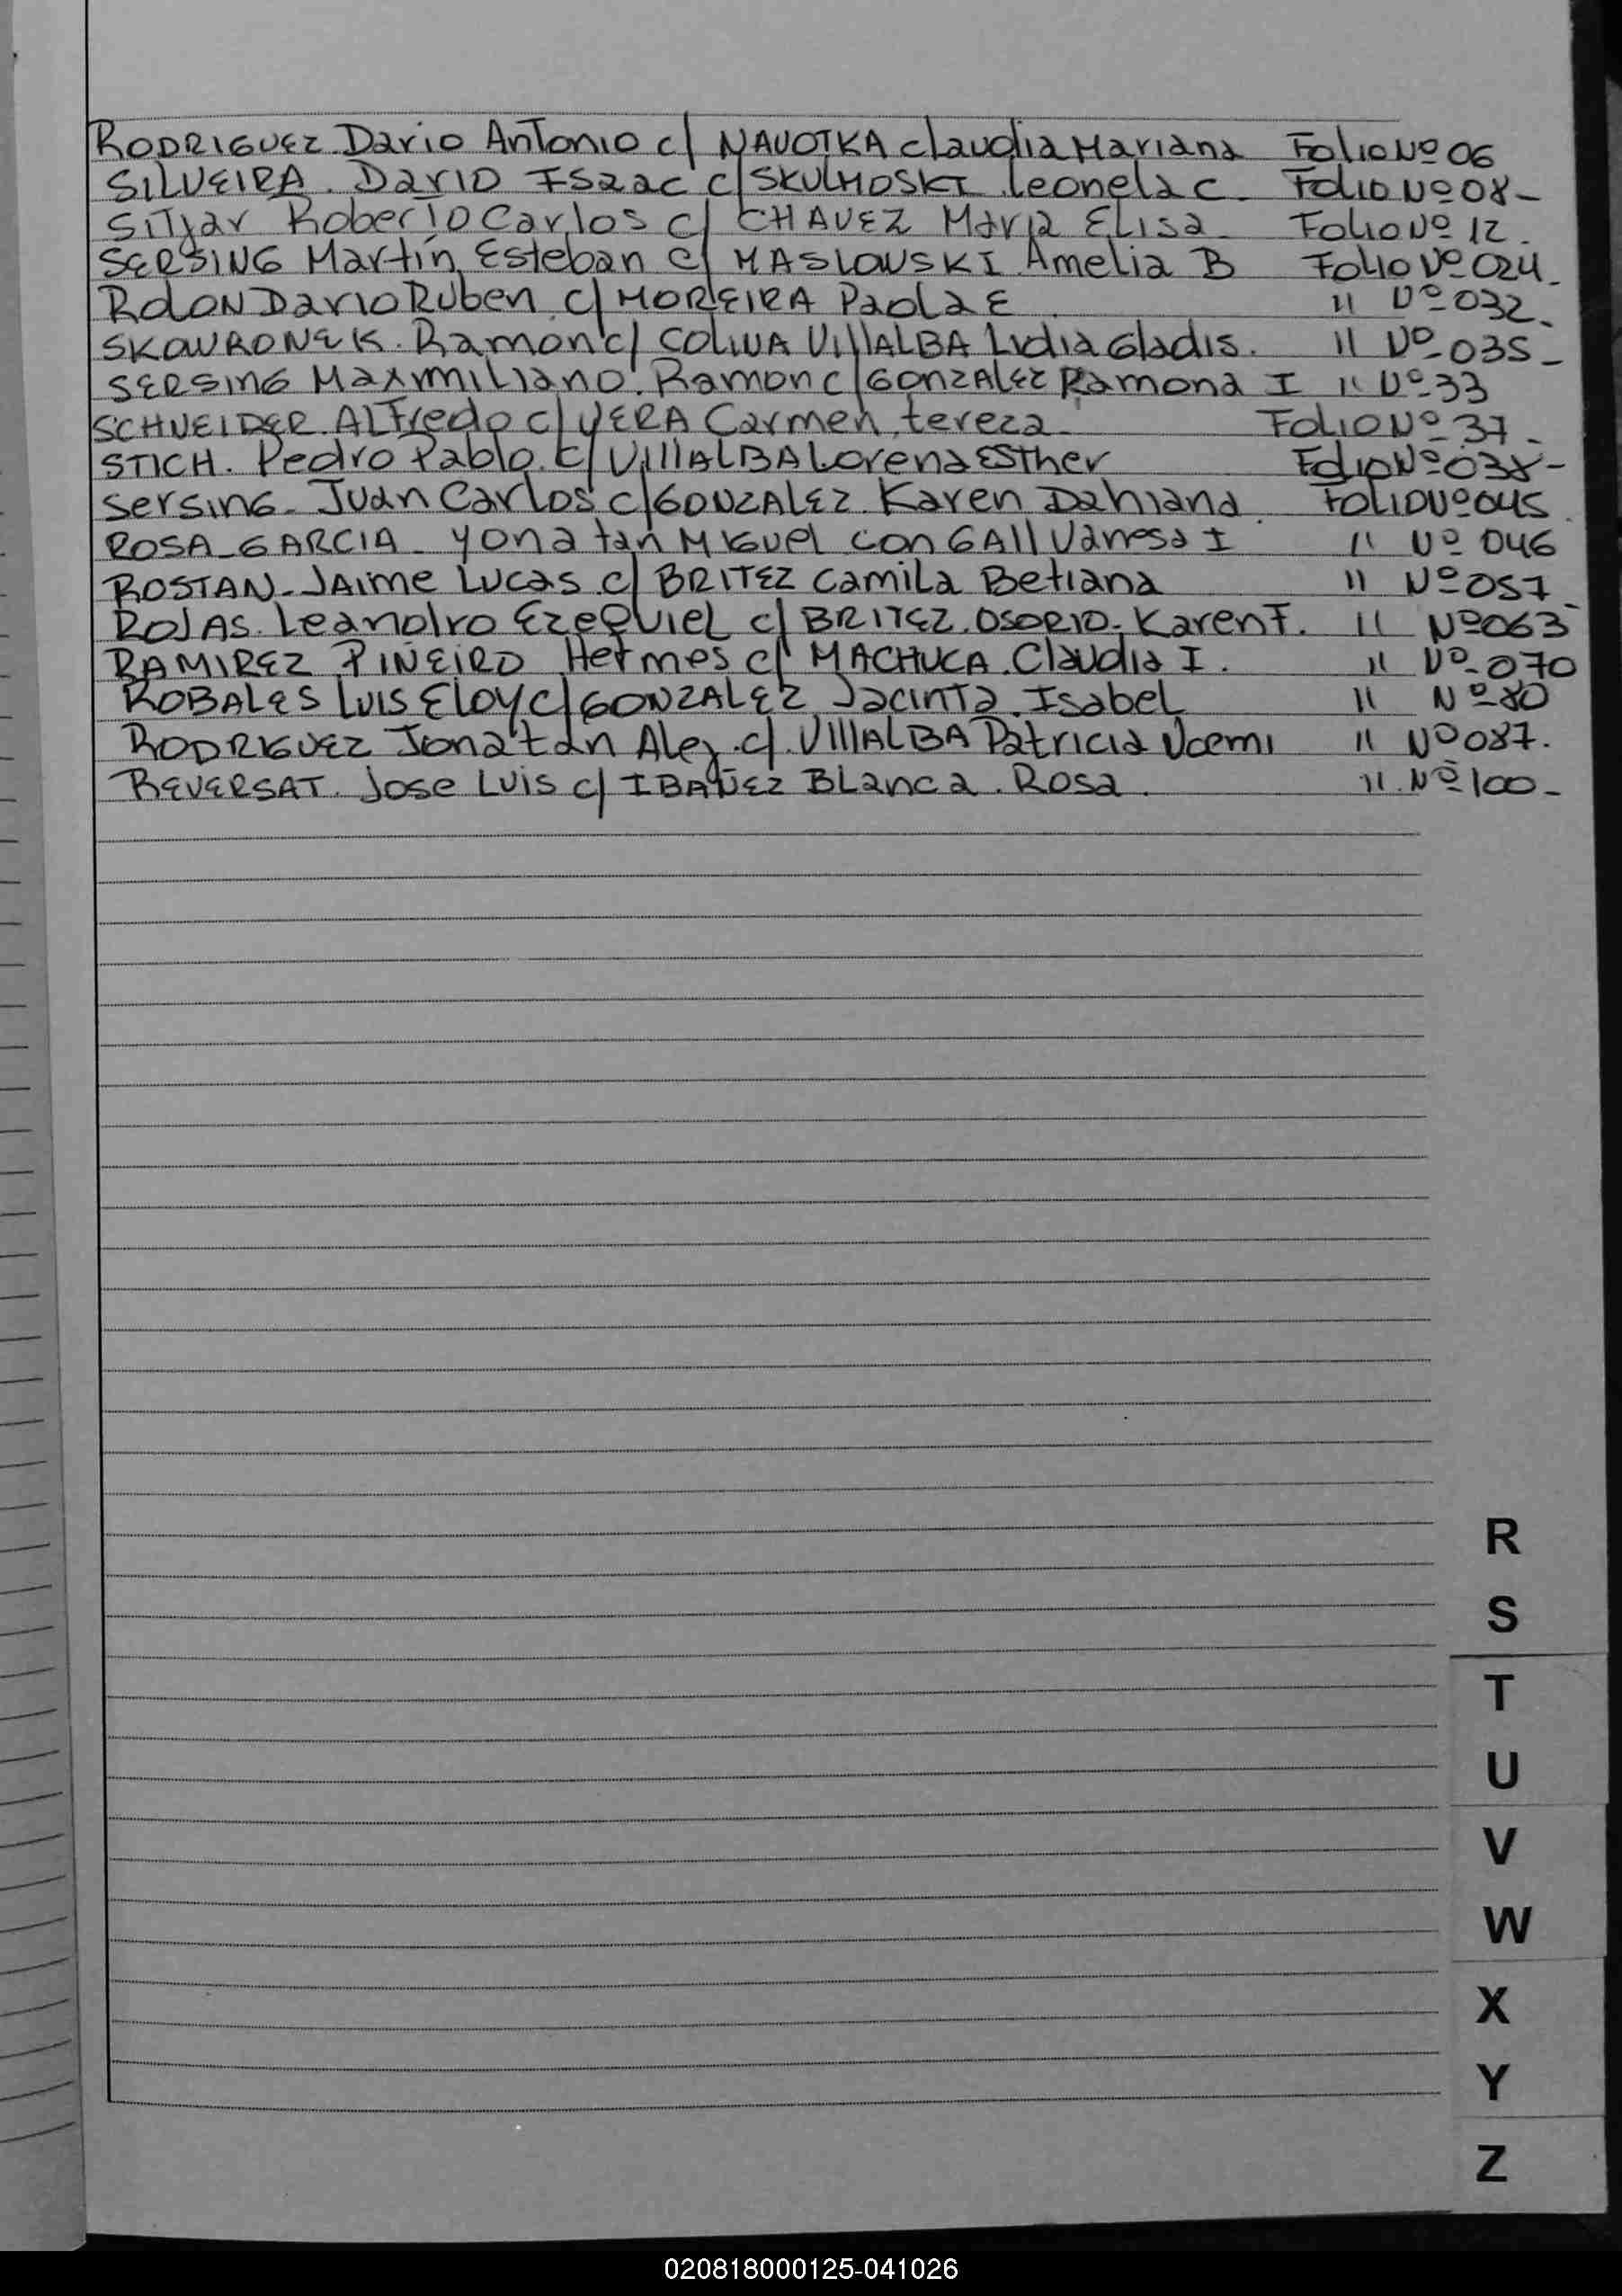 RODRIGUEZ Dario Antonio c/ NAVOTKA claudia Mariana Folio Nº 06
SILVEIRA. Dario Isaac c/ SKULMOSKI leonela c. Folio Nº 08-
Sityar Roberto Carlos c/ CHAVEZ Maria Elisa Folio Nº 12.
SERSING Martín Esteban c/ MASLOWSKI Amelia B Folio Nº 024.
Rolon Dario Ruben c/ MOREIRA Paola E. " Nº 032.
SKOWRONEK. Ramon c/ COLINA VillALBA Lidia Gladis. " Nº 035-
SERSING Maxmiliano. Ramon c/ GONZALEZ Ramona I " Nº 33
SCHNEIDER. ALFredo c/ VERA Carmen tereza. Folio Nº 37-
STICH. Pedro Pablo. c/ VillALBA Lorena Esther Folio Nº 038-
Sersing. Juan Carlos c/ GONZALEZ. Karen Dahiana. Folio Nº 045.
ROSA-GARCIA- yonatan Miguel con GAll Vanesa I " Nº 046
ROSTAN- Jaime Lucas c/ BRITEZ camila Betiana " Nº 057-
ROJAS. Leandro Ezequiel c/ BRITEZ. OSORIO. Karen F. " Nº 063
RAMIREZ PIÑEIRO Hermes c/ MACHUCA. Claudia I. " Nº 070
ROBALES Luis Eloy c/ GONZALEZ Jacinta. Isabel " Nº 80
RODRIGUEZ Jonatan Alej. c/. VillALBA Patricia Noemi " Nº 087.
REVERSAT. Jose Luis c/ IBAÑEZ Blanca. Rosa. " Nº 100-
R
S
T
U
V
W
X
Y
Z
020818000125-041026